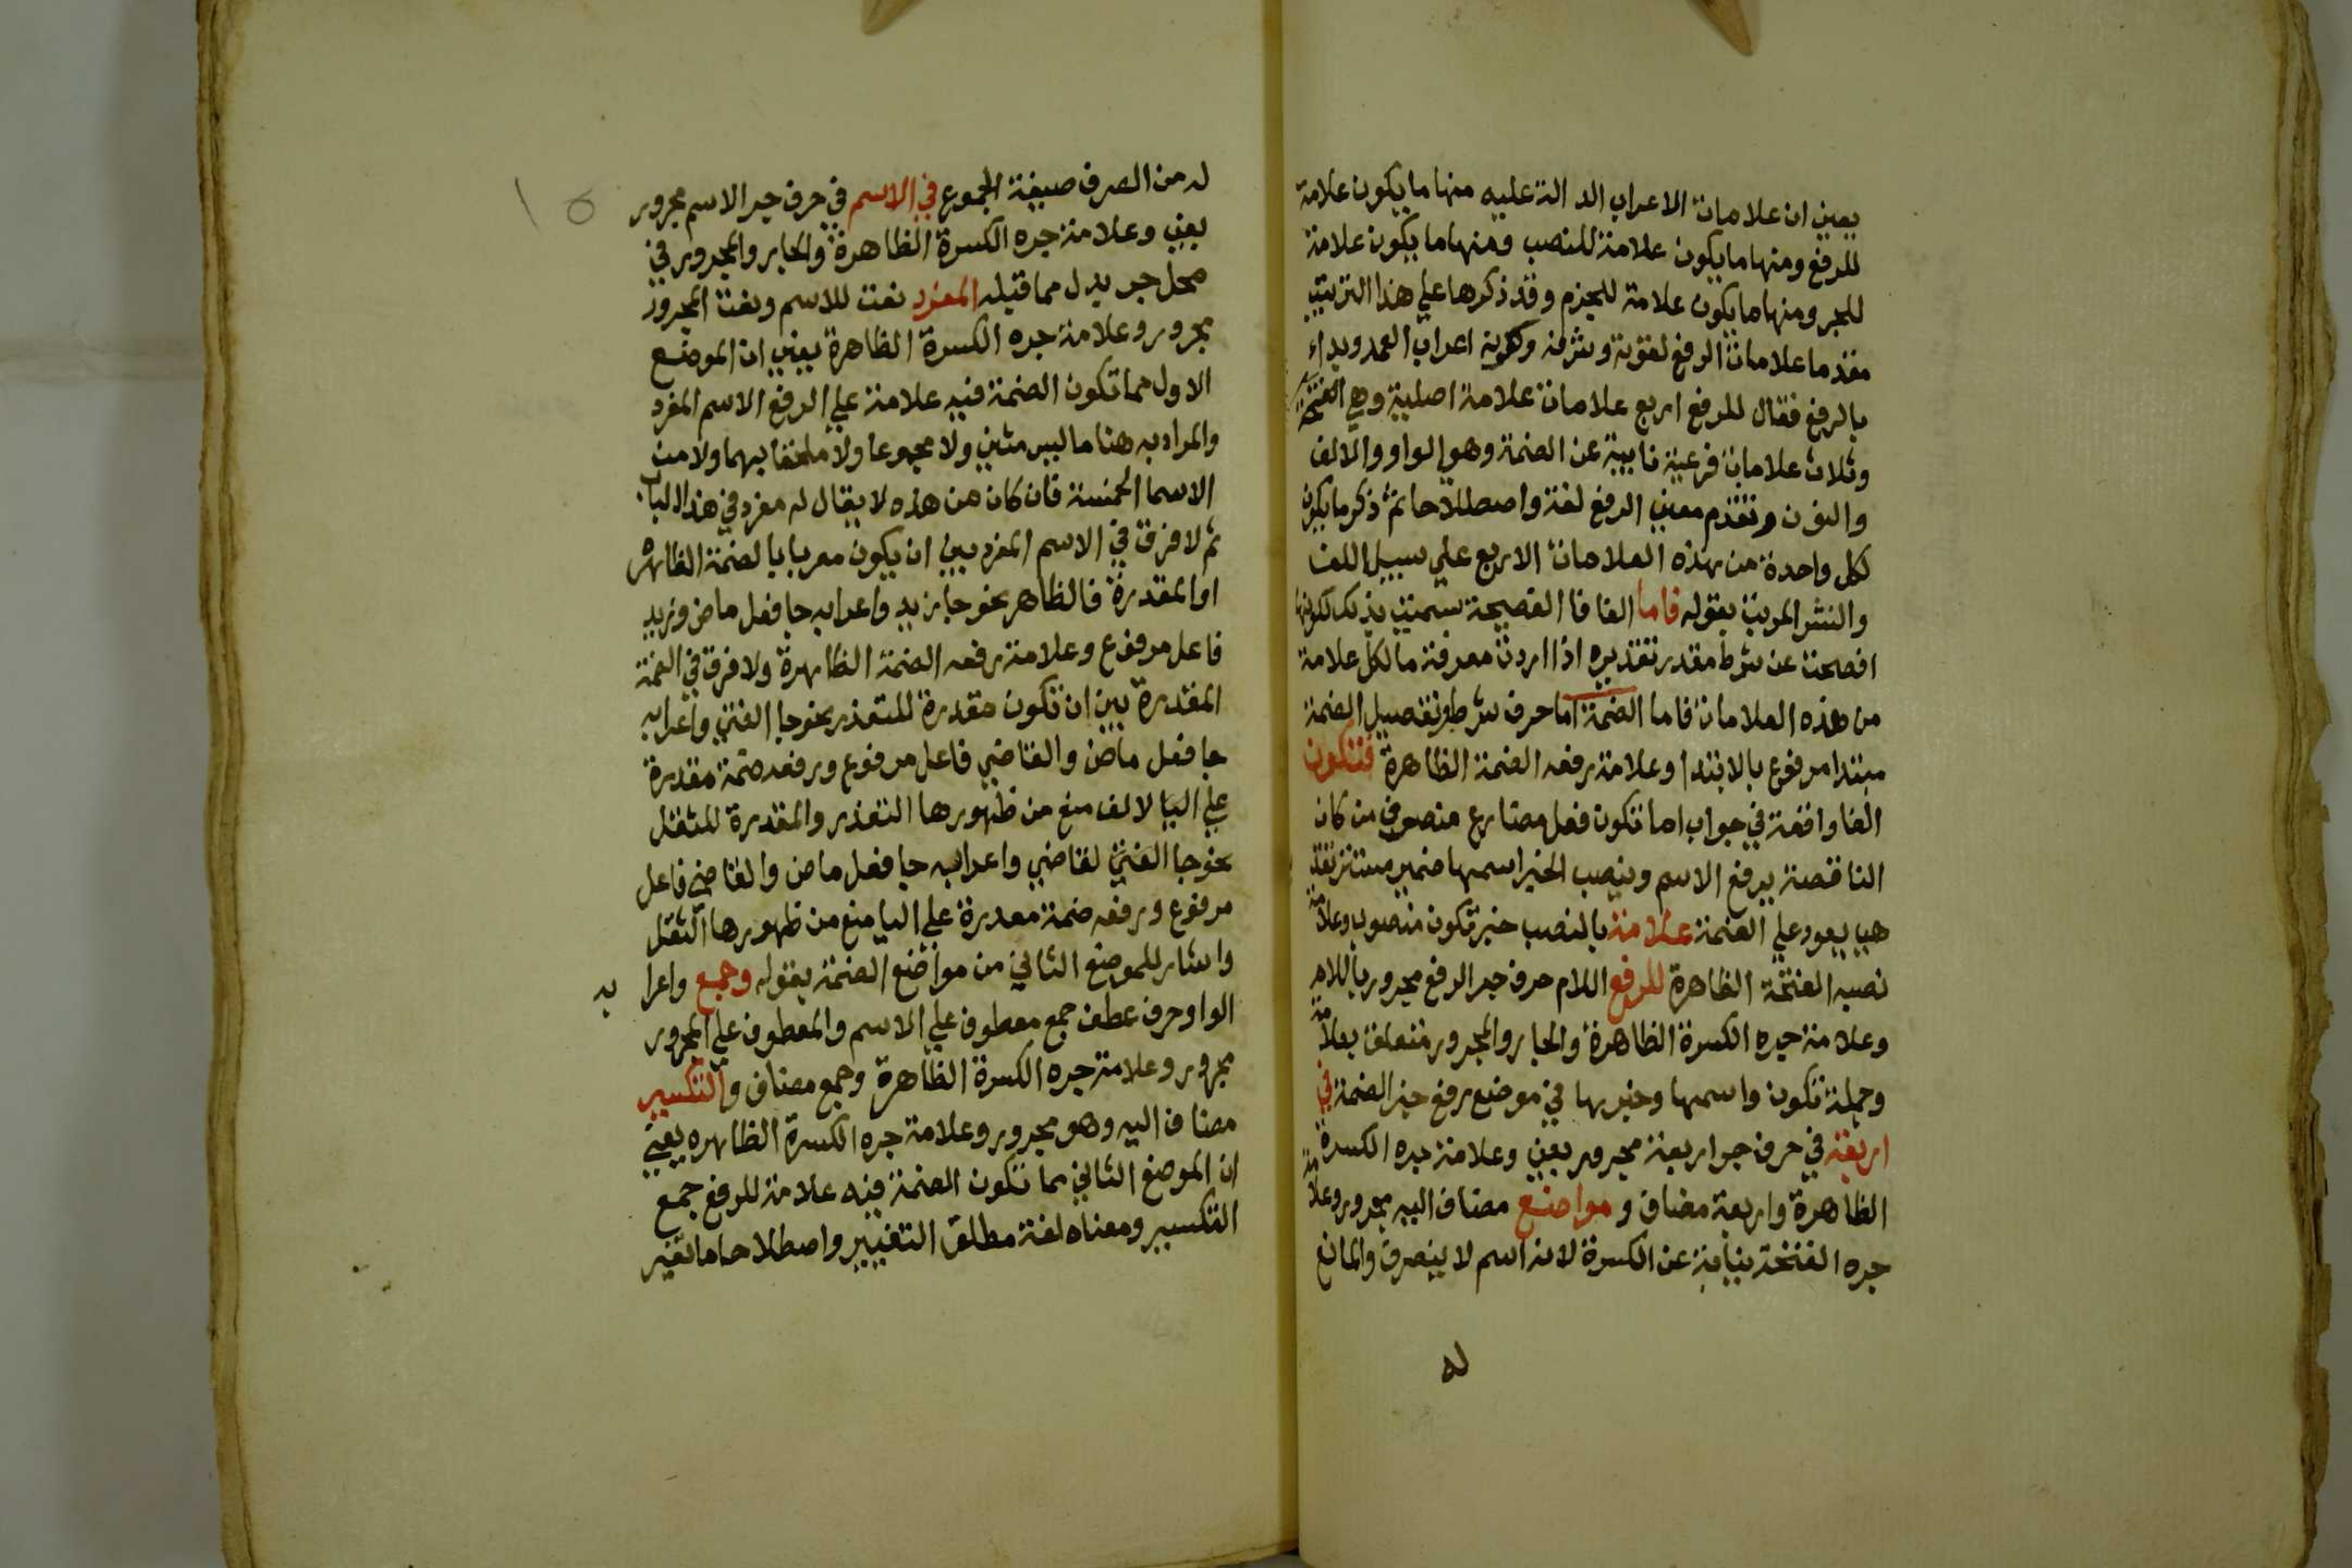 يعني ان علامات الاعراب الدالة عليه منها ما يكون علامة
للرفع ومنها ما يكون علامة للنصب ومنها ما يكون علامة
للجر ومنها ما يكون علامة للجزم وقد ذكرها علي هذا الترتيب
مقدما علامات الرفع لقوته وشرفه وكونه اعراب العمد وبداء
بالرفع فقال للرفع اربع علامات علامة اصلية وهي الضمة
وثلاث علامات فرعية نايبة عن الضمة وهو الواو والالف
والنون وتقدم معني الرفع لغة واصطلاحا ثم ذكر ما يكون
لكل واحدة من هذه العلامات الاربع علي سبيل اللف
والنشر المرتب بقوله فاما الفا فا الفصيحة سميت بذلك لكونها
افصحت عن شرط مقدر تقديره اذا اردت معرفة ما لكل علامة
من هذه العلامات فاما الضمة اما حرف شرط وتفصيل الضمة
مبتدا مرفوع بالابتدا وعلامة رفعه الضمة الظاهرة فتكون
الفا واقعة في جواب اما تكون فعل مضارع متصرف من كان
الناقصة يرفع الاسم وينصب الخبر اسمها ضمير مستتر تقد
هي يعود علي الضمة علامة بالنصب خبر تكون منصوب وعلامة
نصبه الفتحة الظاهرة للرفع اللام حرف جر الرفع مجرور باللام
وعلامة جره الكسرة الظاهرة والجار والمجرور متعلق بعلامة
وجملة تكون واسمها وخبرها في موضع رفع خبر الضمة في
اربعة في حرف جر اربعة مجرور بفي وعلامة جره الكسرة
الظاهرة واربعة مضاف و مواضع مضاف اليه مجرور وعلامة
جره الفتحة نيابة عن الكسرة لانه اسم لا ينصرف والمانع
له
١٥
له من الصرف صيغة الجموع في الاسم في حرف جر الاسم مجرور
بفي وعلامة جره الكسرة الظاهرة والجار والمجرور في
محل جر بدل مما قبله المفرد نعت للاسم ونعت المجرور
مجرور وعلامة جره الكسرة الظاهرة يعني ان الموضع
الاول مما تكون الضمة فيه علامة علي الرفع الاسم المفرد
والمراد به هنا ما ليس مثني ولا مجموعا ولا ملحقا بهما ولا من
الاسما الخمسة فان كان من هذه لا يقال له مفرد في هذا الباب
ثم لا فرق في الاسم المفرد بين ان يكون معربا بالضمة الظاهره
او المقدرة فالظاهر نحو جا زيد واعرابه جا فعل ماض وزيد
فاعل مرفوع وعلامة رفعه الضمة الظاهرة ولا فرق في الضمة
المقدرة بين ان تكون مقدرة للتعذر نحو جا الفتي واعرابه
جا فعل ماض والقاضي فاعل مرفوع ورفعه ضمة مقدرة
علي اليا لالف منع من ظهورها التعذر والمقدرة للثقل
نحو جا الفتي لقاضي واعرابه جا فعل ماض والقاضي فاعل
مرفوع ورفعه ضمة مقدرة علي اليا منع من ظهورها الثقل
واشار للموضع الثاني من مواضع الضمة بقوله وجمع واعرا به
الواو حرف عطف جمع معطوف علي الاسم والمعطوف علي المجرور
مجرور وعلامة جره الكسرة الظاهرة وجمع مضاف والتكسير
مضاف اليه وهو مجرور وعلامة جره الكسرة الظاهره يعني
ان الموضع الثاني مما تكون الضمة فيه علامة للرفع جمع
التكسير ومعناه لغة مطلق التغيير واصطلاحا ما تغير